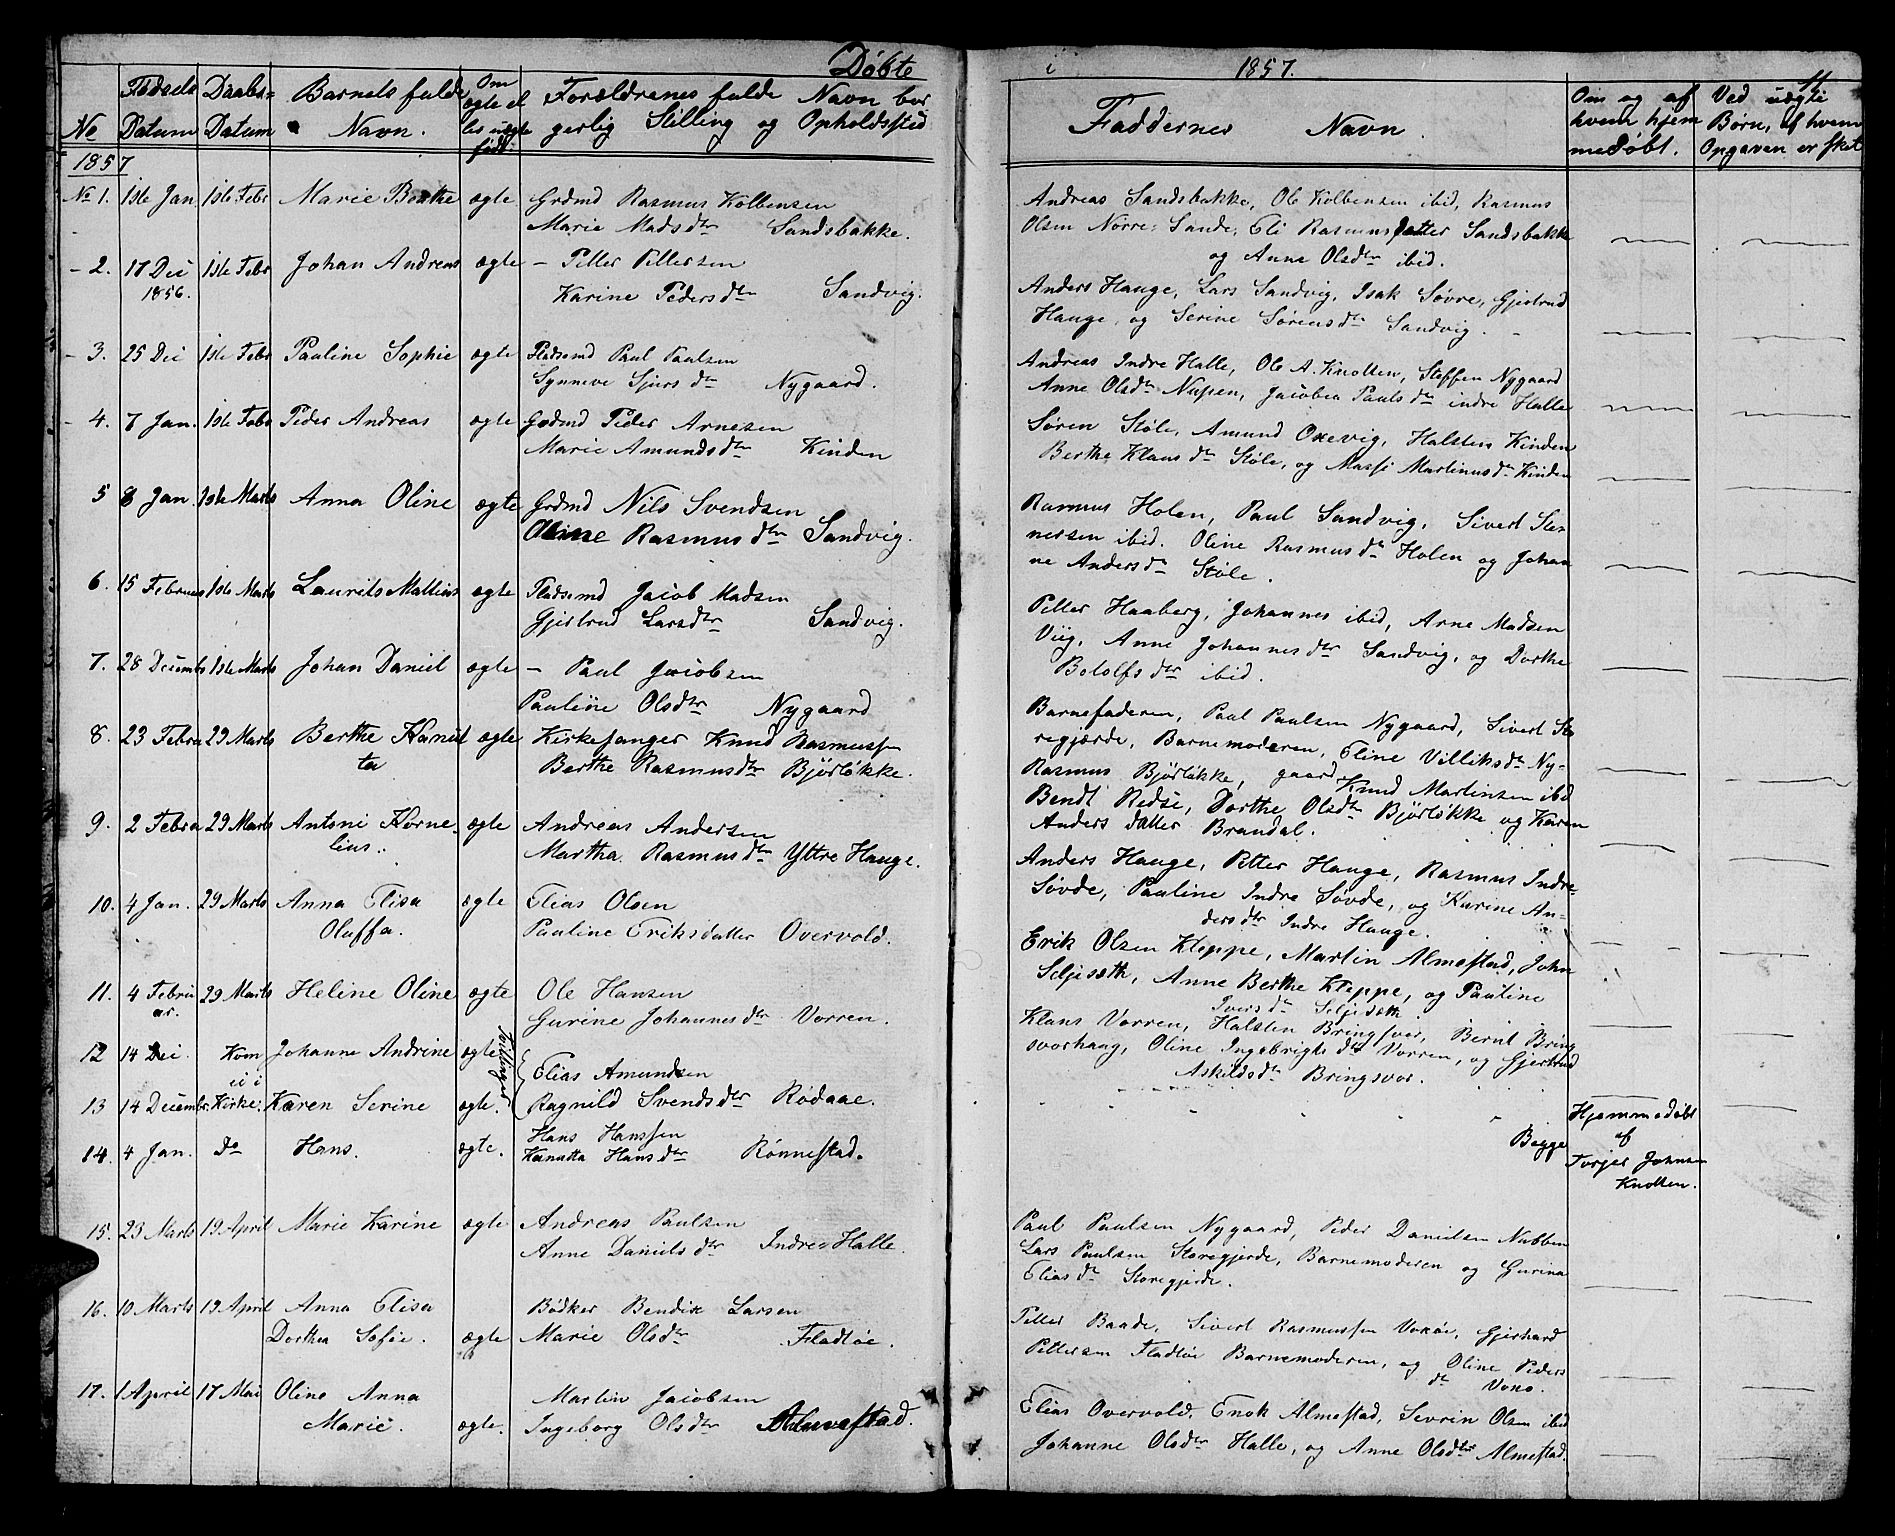 Døbte
No
Fødsels Datum
Daabs- Datum
Barnets fulde Navn.
Om ægte el ler uægte født.
Forældrenes fulde Navn bor
gerlig Stilling og Opholdssted
1857
No 1. 1ste Jan 1ste Febr Marie Berthe ægte Grdmd Rasmus Kolbensen
Marie Madsdtr Sandsbakke.
- 2. 17 Dei 1ste Febr Johan Andreas ægte - Petter Pettersen
1856. Karine Pedersdtr Sandvig.
- 3. 25 Dei 1ste Febr Pauline Sophie ægte Pladsemd Paul Paulsen
Synneve Sjursdtr Nygaard.
- 4. 7 Jan. 1ste Febr Peder Andreas ægte Grdmd Peder Arnesen
Marie Amundsdtr Kinden
5 8 Jan. 1ste Marts Anna Oline ægte Grdmd Nils Svendsen
Oline Rasmusdtr Sandvig.
6. 15 Februar 1ste Marts Laurits Mathias ægte Pladsemd Jacob Madsen
Gjertrud Larsdtr Sandvig.
7. 28 Decembr 1ste Marts Johan Daniel ægte - Paul Jacobsen
Pauline Olsdtr Nygaard
8. 23 Febru 29 Marts Berthe Kanut ægte Kirkesanger Knud Rasmussen
ta Berthe Rasmusdtr Bjørløkke.
9. 2 Febru 29 Marts Antoni Korne- ægte Andreas Andersen
lius. Martha Rasmusdtr Yttre Hauge.
10. 4 Jan. 29 Marts Anna Elisa ægte Elias Olsen
Oluffa. Pauline Eriksdatter Overvold.
11. 4 Febru 29 Marts Heline Oline ægte Ole Hansen
ar. Gurine Johannesdtr Vorren.
12 14 Dei. Kom Johanne Andrine ægte Tvillinger Elias Amundsen
i
13 14 Decembr. Kirke. Karen Serine ægte. Ragnild Svendsdtr Rødaae.
14. 4 Jan. Do Hans. ægte. Hans Hanssen
Kanutta Hansdtr Rønnestad.
15. 23 Marts 19 April Marie Karine ægte Andreas Paulsen
Anne Danielsdtr Indre Halle.
16. 10 Marts 19 April Anna Elisa Bødker Bendik Larsen
Dorthea Sofie. ægte Marie Olsdtr Fladtøe.
17. 1 April 17 Mai Oline Anna Martin Jacobsen
Marie. ægte. Ingeborg Olsdtr Almestad.
i 1857. 11
Faddernes Navn.
Om og af hvem hjem medøbt.
Ved uægte Børn, af hvem Opgaven er sket
Andreas Sandsbakke, Ole Kolbensen ibid, Rasmus
Olsen Nørre-Sande, Eli Rasmusdatter Sandsbakke
og Anne Olsdtr ibid.
Anders Hauge, Lars Sandvig, Isak Søvre, Gjertrud
Hauge, og Serine Sørensdtr Sandvig.
Andreas Indre Halle, Ole A. Knotten, Steffen Nygaard
Anne Olsdtr Nupen, Jacobea Paulsdtr indre Halle
Søren Støle, Amund Oxevig, Halsten Kinden
Berthe Klausdtr Støle, og Massi Martinusdtr Kinden
Rasmus Holen, Paul Sandvig, Sivert Ste-
nersen ibid. Oline Rasmusdtr Holen og Johan
ne Andersdtr Støle.
Petter Haaberg, Johannes ibid, Arne Madsen
Viig, Anne Johannesdtr Sandvig, og Dorthe
Bololfsdtr ibid.
Barnefaderen, Paul Paulsen Nygaard, Sivert Sto
regjærde, Barnemoderen, Eline Villiksdtr Ny-
Rasmus Bjørløkke, gaard Knud Martinsen ibid
Bendt Redse, Dorthe Olsdtr Bjørløkke og Karen
Anders datter Brandal.
Anders Hauge, Petter Hauge, Rasmus Indre-
Søvde, Pauline Indre Søvde, og Karine An-
dersdtr Indre Hauge.
Erik Olsen Kleppe, Martin Almestad, John
Seljesæth, Anne Berthe Kleppe, og Pauline
Iversdtr Seljesæth.
Klaus Vorren, Halsten Bringsvor, Bernt Bring
svorhaug, Oline Ingebrigtsdtr Vorren, og Gjertrud
Askildsdtr Bringsvor.
Begge
Hjemmedøbt
af
Torger Johnsen
Knotten.
Paul Paulsen Nygaard, Peder Danielsen Nubben
Lars Paulsen Storegjerde, Barnemoderen og Gurina
Eliasdtr Storegjerde.
Petter Baade, Sivert Rasmussen Voksøe, Gjerhard
Pettersen Fladtøe Barnemoderen, og Oline Peders
dtr
Elias Overvold, Enok Almestad, Sevrin Olsen ibid
Johanne Olsdtr Halle, og Anne Olsdtr Almestad.